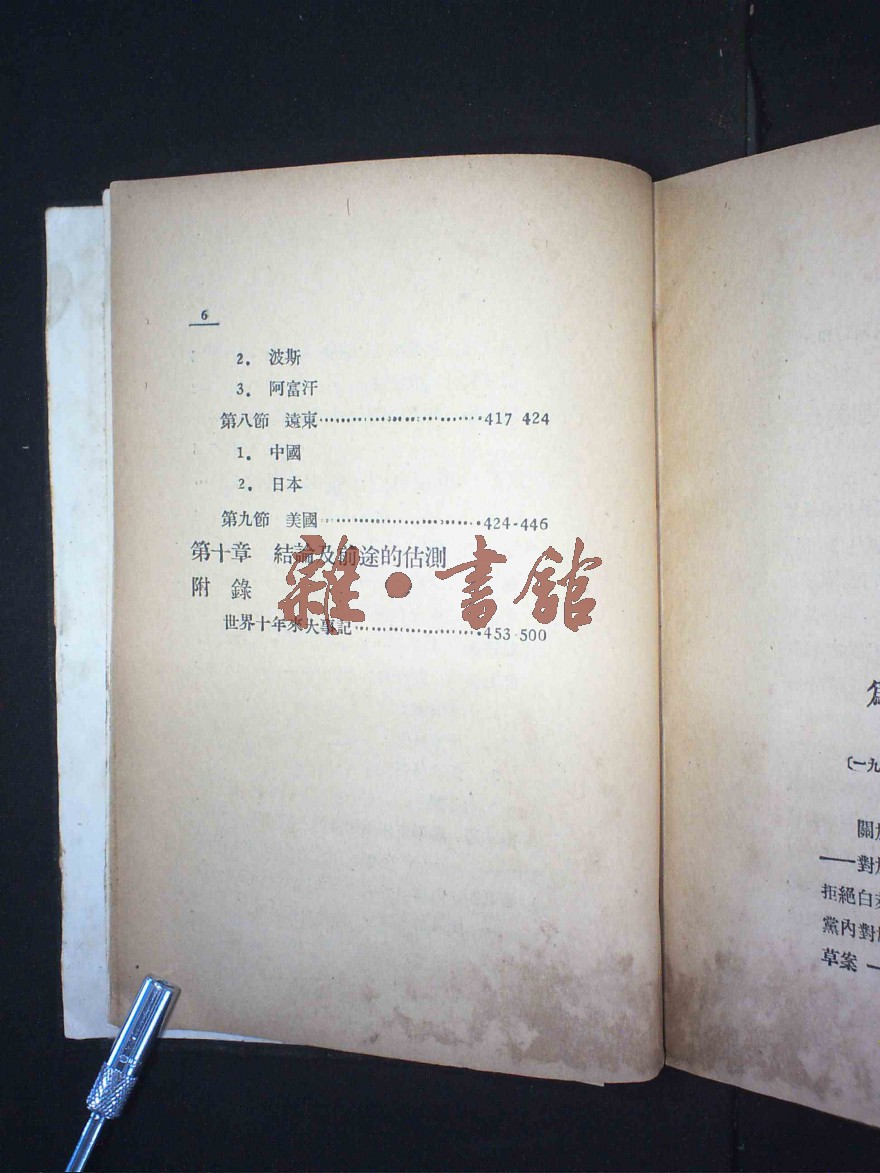 6
2. 波斯
3. 阿富汗
第八節 遠東………………………417 424
1. 中國
2. 日本
第九節 美國………………………424-446
第十章 結論及前途的估測
附 錄
世界十年來大事記…………………453-500
雜·書館
〔一九
關
——對
拒絕白
黨內對
草案 —